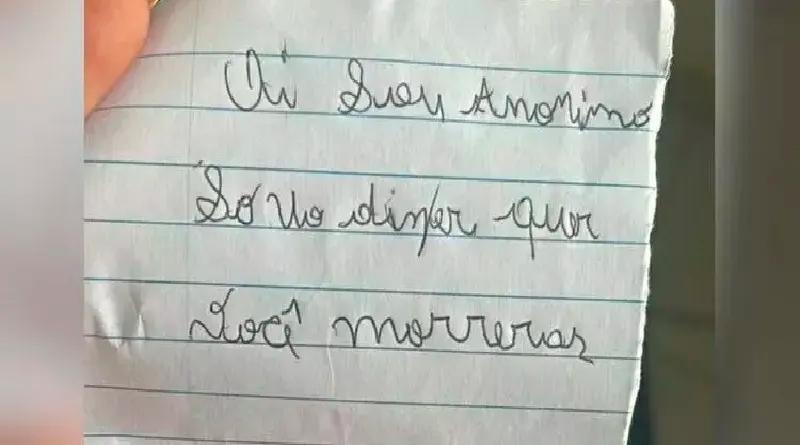 Oi Sou Anonimo
Só vo dinzer quer
Você morreras